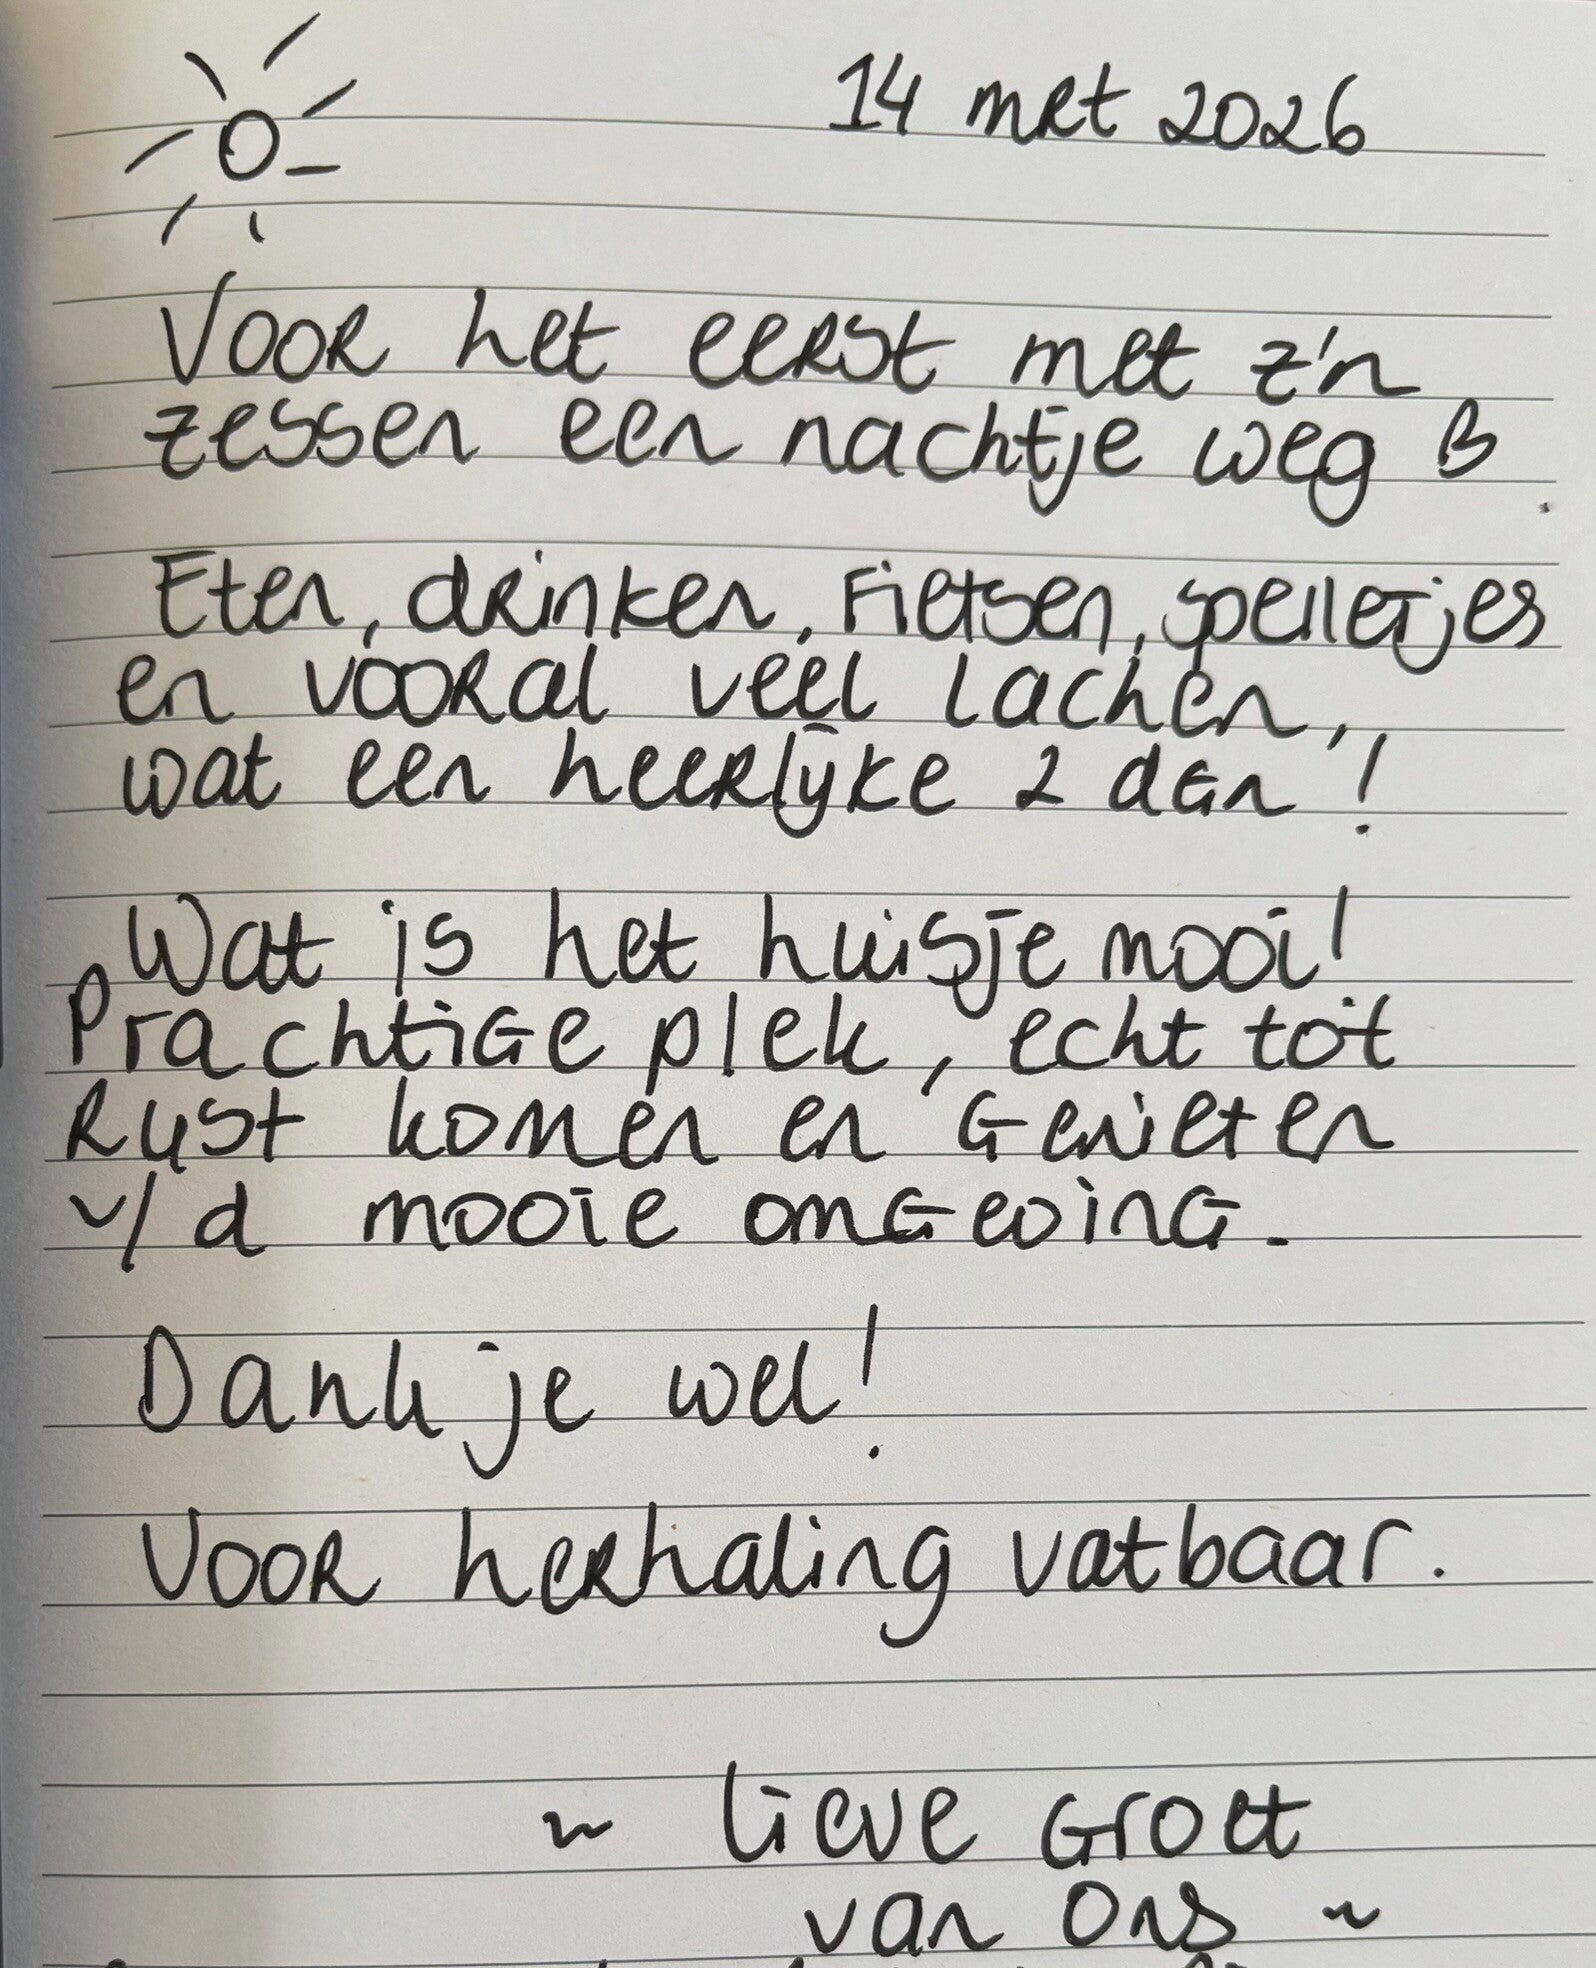 14 mrt 2026
Voor het eerst met z'n
zessen een nachtje weg
Eten, drinken, fietsen, spelletjes
en vooral veel lachen,
wat een heerlijke 2 daagn!
Wat is het huisje mooi!
Prachtige plek, echt tot
Rust komen en Genieten
v/d mooie omgeving.
Dank je wel!
Voor herhaling vatbaar.
~ lieve Groet
van Ons ~